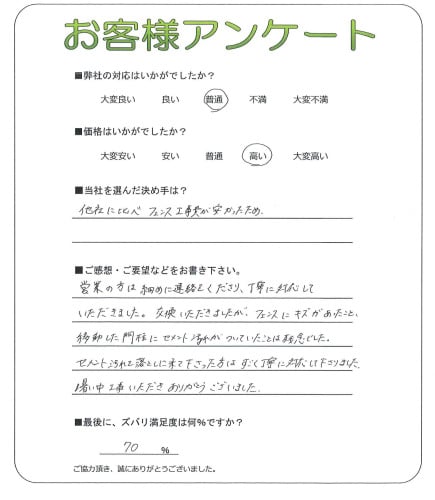 お客様アンケート
■弊社の対応はいかがでしたか?
大変良い 良い 普通 不満 大変不満
■価格はいかがでしたか?
大変安い 安い 普通 高い 大変高い
■当社を選んだ決め手は?
他社に比べ フェンス工事費が安かったため.
■ご感想・ご要望などをお書き下さい。
営業の方は細めに連絡をくださり、丁寧に対応して
いただきました。交換いただきましたが、フェンスにキズがあったこと、
移動した門柱にセメント汚れがついていたことは残念でした。
セメント汚れを落としに来て下さった方は すごく丁寧に対応して下さりました.
暑い中 工事いただき ありがとうございました.
■最後に、ズバリ満足度は何%ですか?
70 %
ご協力頂き、誠にありがとうございました。